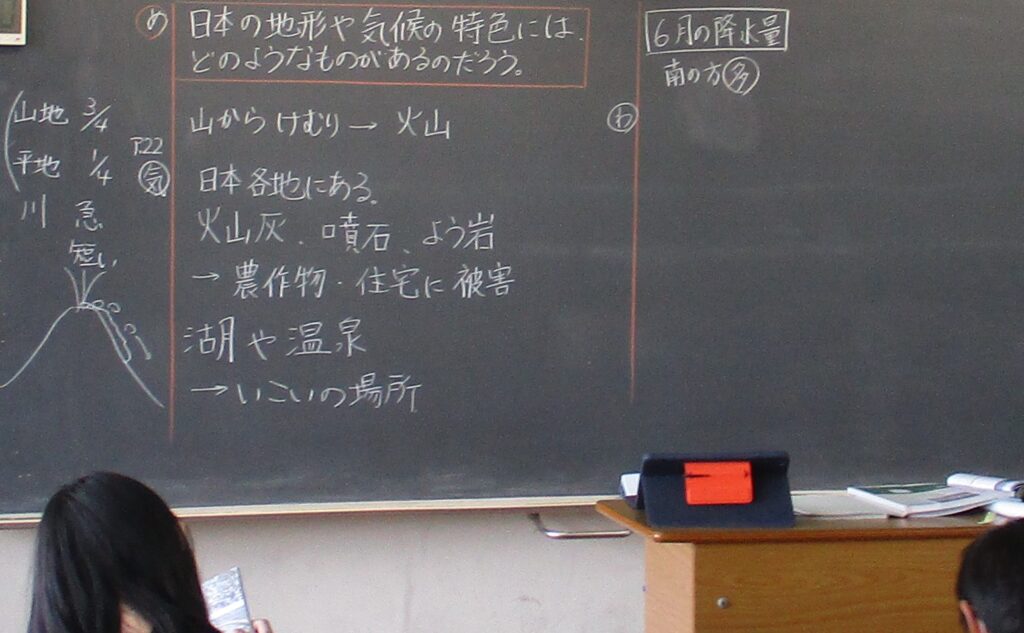 め
日本の地形や気候の特色には、
どのようなものがあるのだろう。
山地 3/4
平地 1/4
川 急
短い
P.22
気
山からけむり→ 火山
日本各地にある。
火山灰、噴石、よう岩
→ 農作物・住宅に被害
湖や温泉
→いこいの場所
6月の降水量
南の方 多
わ